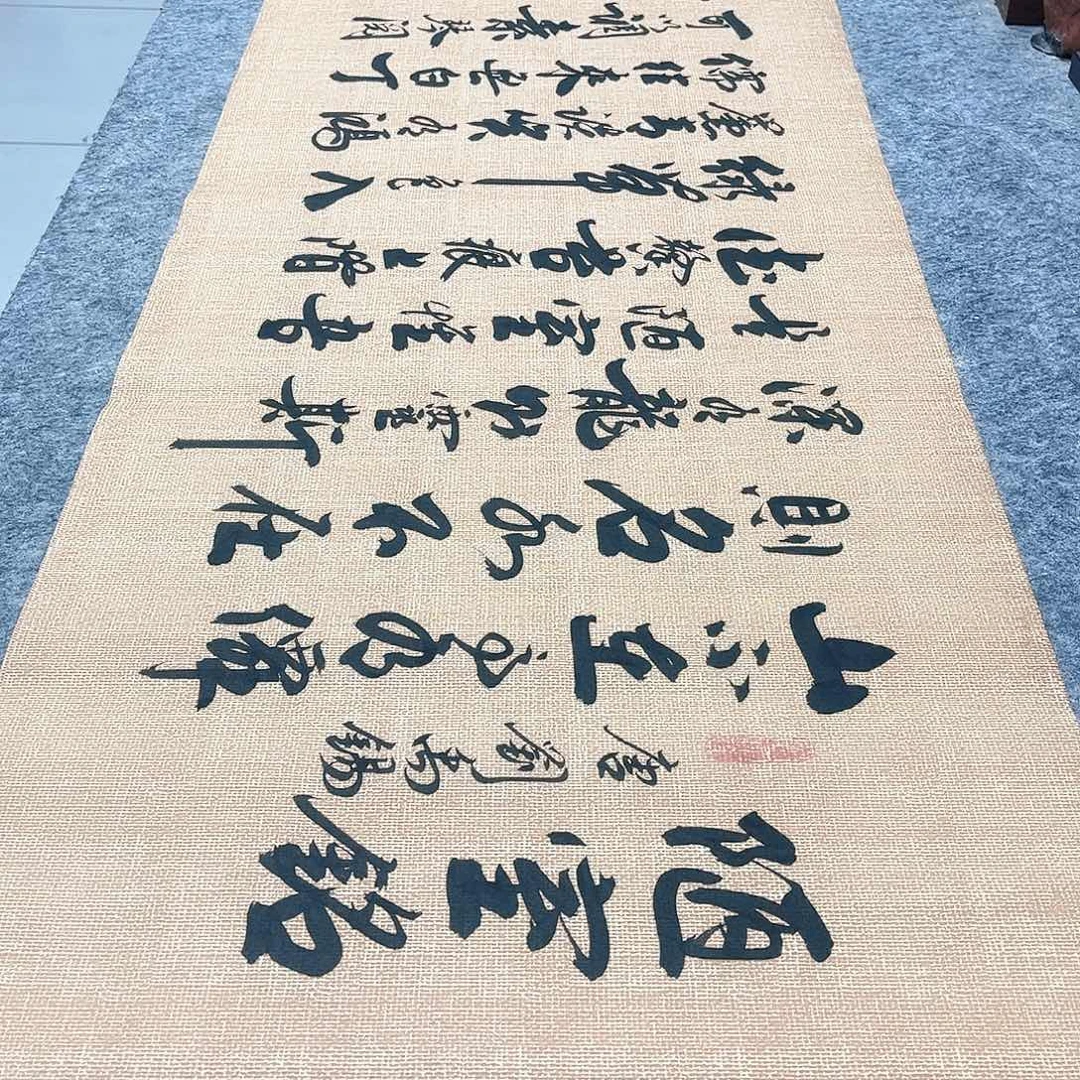 陋室銘
唐劉禹錫
山不在高有僊
則名水不在
深有龍則靈斯
是陋室惟吾
德馨苔痕上階
綠草色入
簾青談笑有鴻
儒往來無白丁
可以調素琴閱